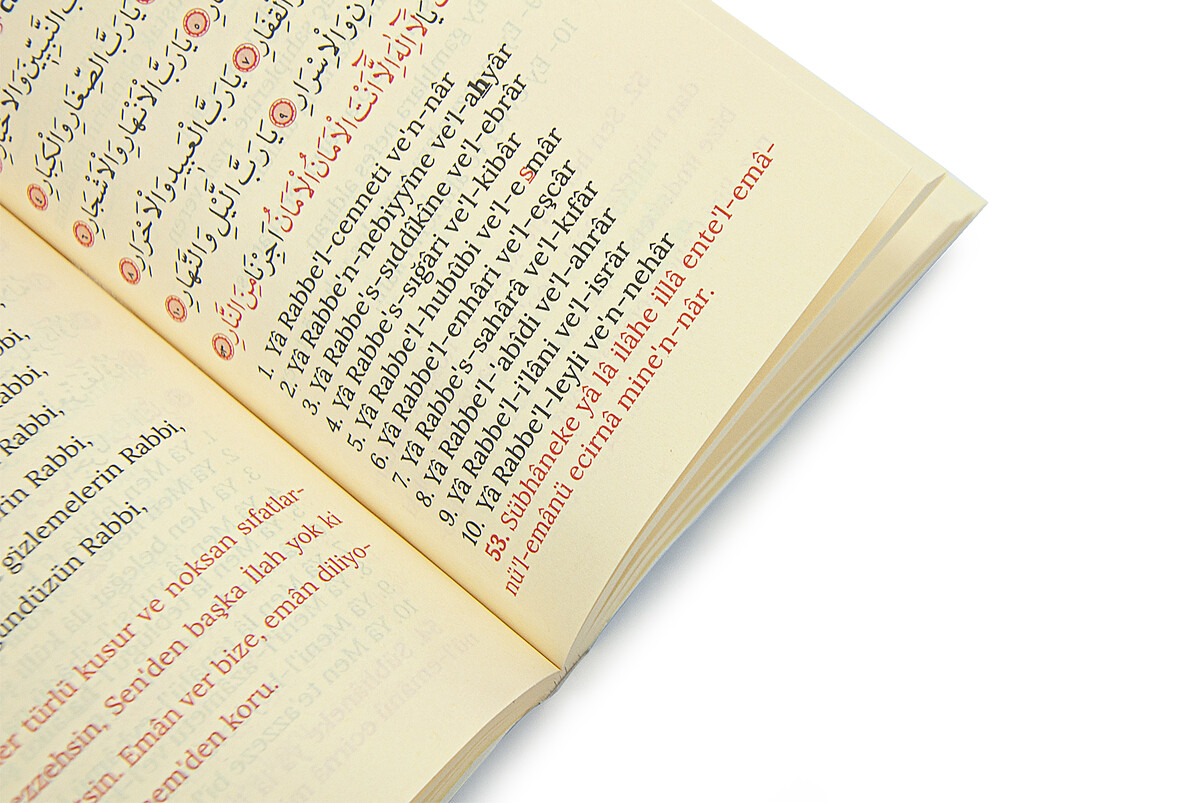 النَّبِيّ۪نَ وَالْاَخْيَارِ
يَارَبَّ الصِّغَارِ وَالْكِبَارِ ٤
يَارَبَّ الْاَنْهَارِ وَالْاَشْجَارِ ٦
الْقِفَارِ ٧ يَارَبَّ الْعَب۪يدِ وَالْاَحْرَارِ ٨
وَالْاِسْرَارِ ٩ يَارَبَّ الَّيْلِ وَالنَّهَارِ ١٠
يَالَٓا اِلٰهَ اِلَّٓا اَنْتَ الْاَمَانُ الْاَمَانُ اَجِرْنَامِنَ النَّارِ
1. Yâ Rabbe'l-cenneti ve'n-nâr
2. Yâ Rabbe'n-nebiyyîne ve'l-ahyâr
3. Yâ Rabbe's-sıddîkîne ve'l-ebrâr
4. Yâ Rabbe's-sigâri ve'l-kibâr
5. Yâ Rabbe'l-hubûbi ve'l-esmâr
6. Yâ Rabbe'l-enhâri ve'l-eşcâr
7. Yâ Rabbe's-sahârâ ve'l-kıfâr
8. Yâ Rabbe'l-'abîdi ve'l-ahrâr
9. Yâ Rabbe'l-i'lâni ve'l-isrâr
10. Yâ Rabbe'l-leyli ve'n-nehâr
53. Sübhâneke yâ lâ ilâhe illâ ente'l-emâ-
nü'l-emânü ecirnâ mine'n-nâr.
Rabbi,
Rabbi,
Rabbi,
gizlemelerin Rabbi,
Rabbi,
türlü kusur ve noksan sıfatlar-
Sen'den başka İlah yok ki
Emân ver bize, emân diliyo-
koru.